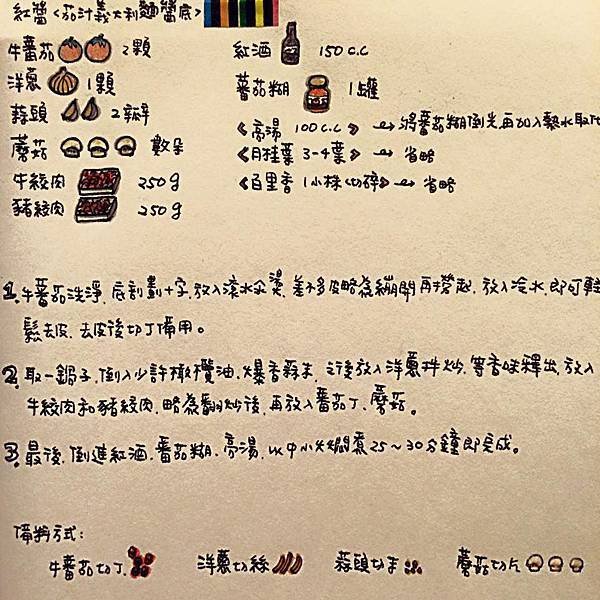 紅醬<茄汁義大利麵醬底>
牛蕃茄 2顆
紅酒 150 c.c
洋蔥 1顆
蕃茄糊 1罐
蒜頭 2瓣
《高湯 100c.c》→將蕃茄糊倒光再加入熱水取代
蘑菇 數朵
《月桂葉 3-4葉》→省略
牛絞肉 250g
《百里香 1小株切碎》→省略
豬絞肉 250g
1.牛蕃茄洗淨、底部劃十字,放入滾水汆燙,差不多皮略為繃開再撈起,放入冷水,即可輕
鬆去皮、去皮後切丁備用。
2.取一鍋子,倒入少許橄欖油,爆香蒜末,之後放入洋蔥拌炒,等香味釋出,放入
牛絞肉和豬絞肉,略為翻炒後,再放入蕃茄丁、蘑菇。
3.最後,倒進紅酒、蕃茄糊、高湯,以中小火燜煮25~30分鐘即完成。
備料方式:
牛蕃茄切丁 洋蔥切絲 蒜頭切末 蘑菇切片